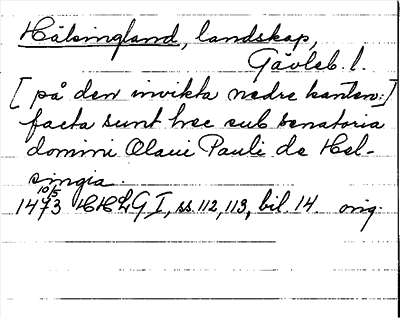 Hälsingland, landskap,
Gävleb. l.
[på den invikta nedre kanten:]
facta sunt hec sub senatoria
domini Olaui Pauli de Hel-
singia.
10/5
1473 HHLG I, ss 112, 113, bil. 14. orig.